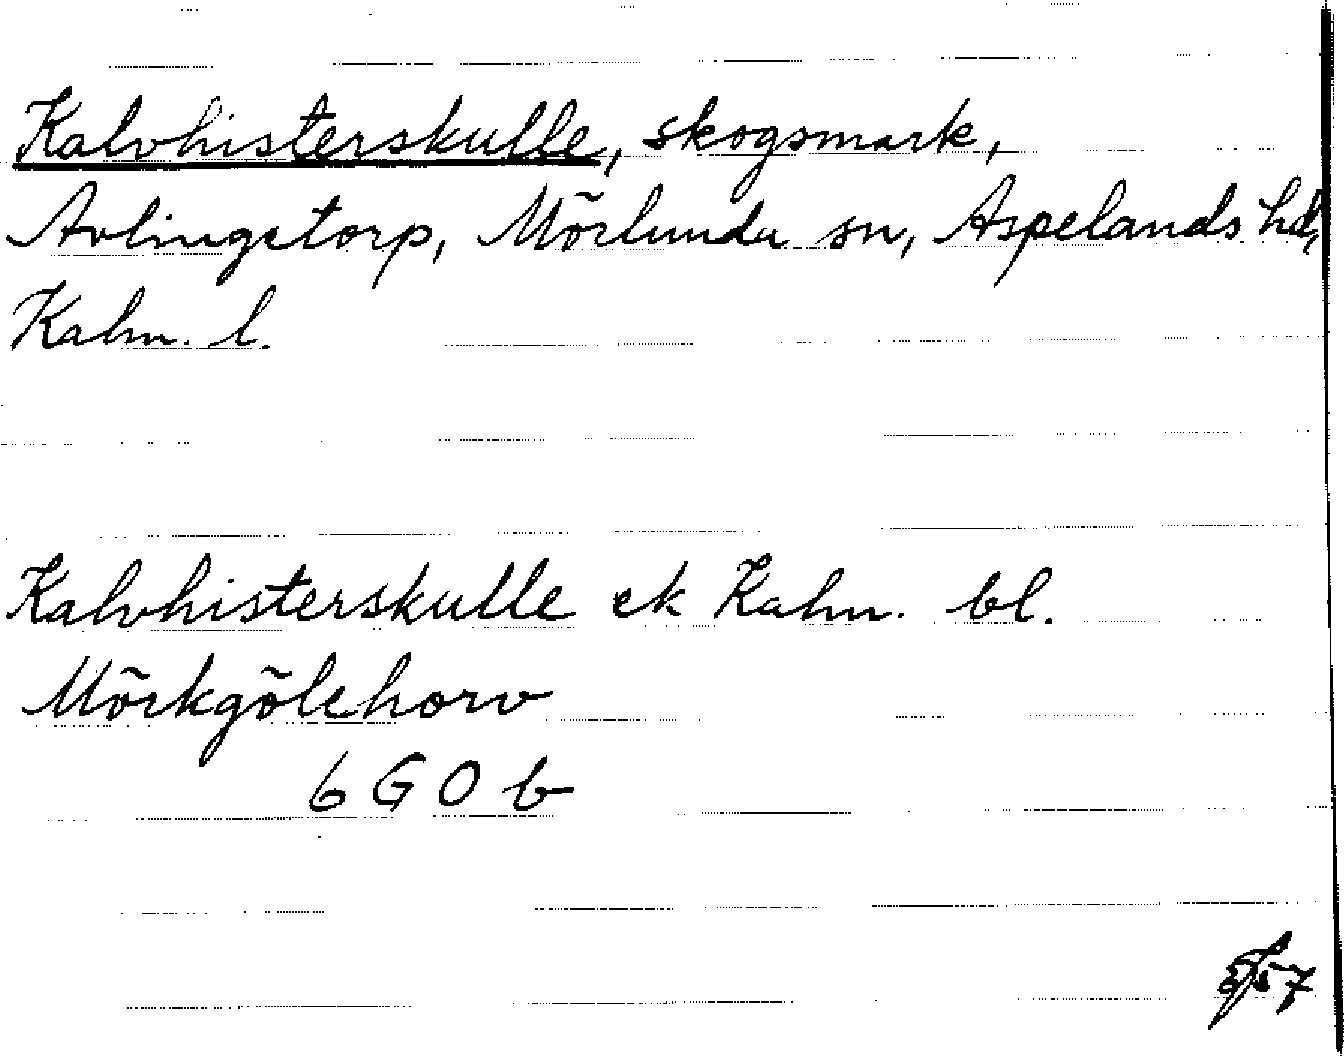 Kalvhisterskulle, skogsmark,
Avlingetorp, Mörlunda sn, Aspelands hd,
Kalm. l.
Kalvhisterskulle ek Kalm. bl.
Mörkgölehorv
6 G 0 b
57